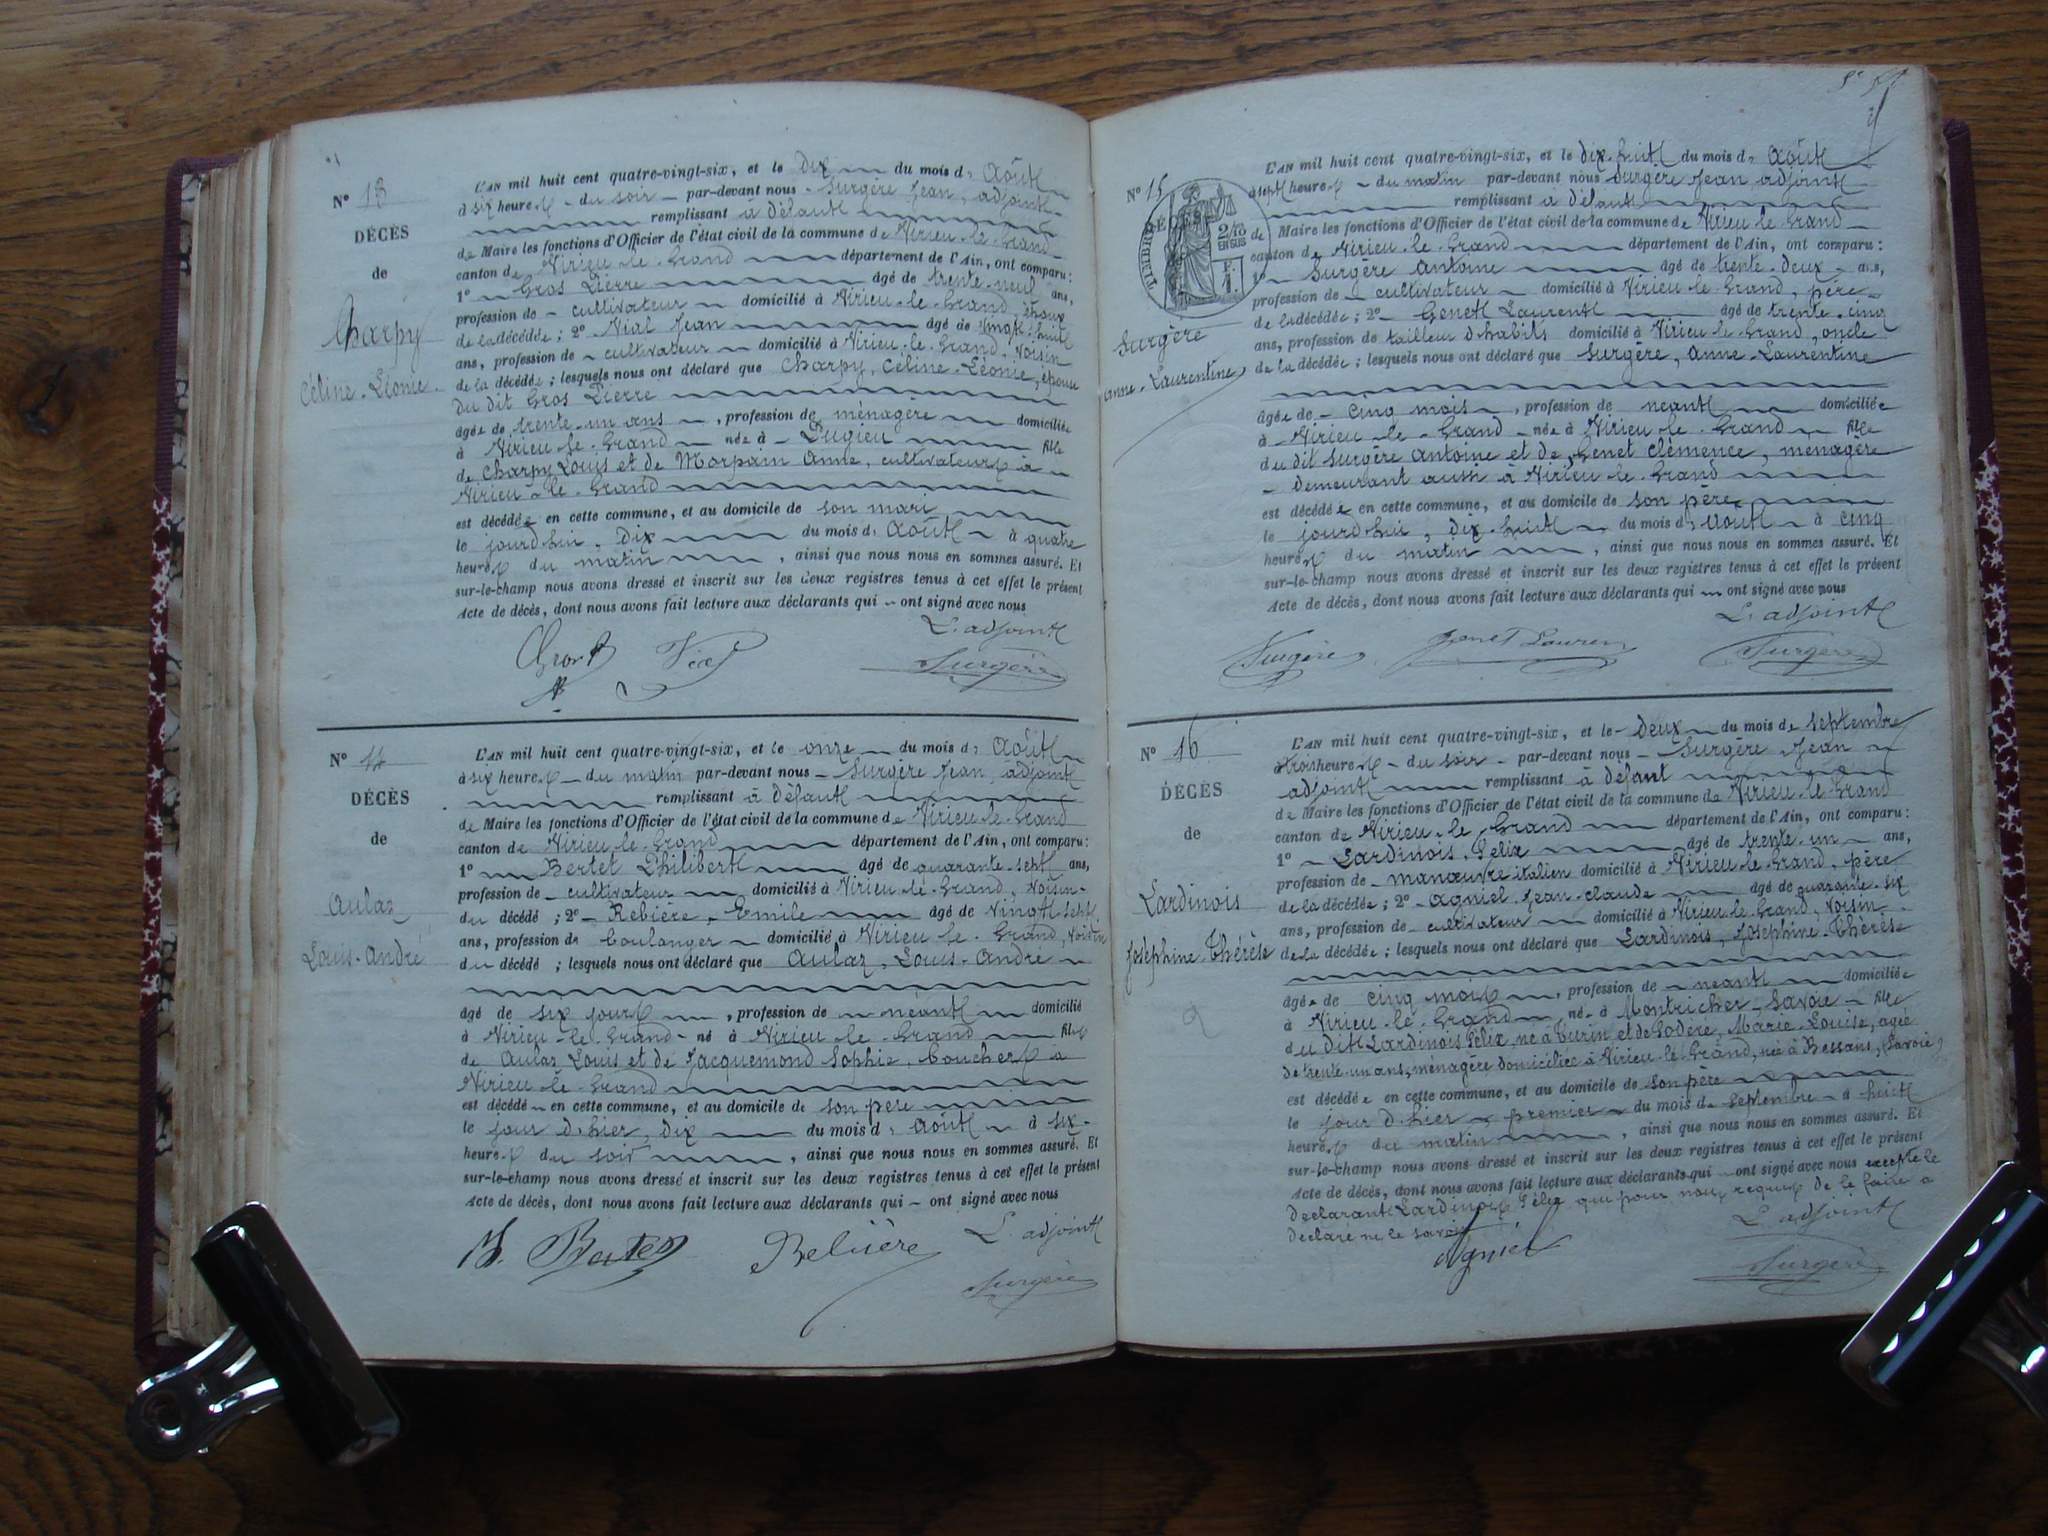 N° 13
DÉCÈS
de
Charpy
Céline-Léonie
L'AN mil huit cent quatre-vingt-six, et le dix du mois d' Août
à six heures du soir par-devant nous Surgère Jean, adjoint
remplissant à défaut
de Maire les fonctions d'Officier de l'état civil de la commune de Virieu-le-Grand
canton de Virieu-le-Grand département de l'Ain, ont comparu:
1° Gros Pierre âgé de trente-neuf ans,
profession de cultivateur domicilié à Virieu-le-Grand, époux
de la décédée; 2° Vial Jean âgé de vingt-huit
ans, profession de cultivateur domicilié à Virieu-le-Grand, voisin
de la décédée; lesquels nous ont déclaré que Charpy, Céline-Léonie, épouse
du dit Gros Pierre
âgée de trente-un ans, profession de ménagère domiciliée
à Virieu-le-Grand née à Pugieu fille
de Charpy Louis et de Morpain Anne, cultivateurs à
Virieu-le-Grand
est décédée en cette commune, et au domicile de son mari
le jourd'hui, dix du mois d' Août à quatre
heures du matin, ainsi que nous nous en sommes assuré. Et
sur-le-champ nous avons dressé et inscrit sur les deux registres tenus à cet effet le présent
Acte de décès, dont nous avons fait lecture aux déclarants qui ont signé avec nous
L'adjoint
Surgère
N° 14
DÉCÈS
de
Aulaz
Louis-André
L'AN mil huit cent quatre-vingt-six, et le onze du mois d' Août
à six heures du matin par-devant nous Surgère Jean, adjoint
remplissant à défaut
de Maire les fonctions d'Officier de l'état civil de la commune de Virieu-le-Grand
canton de Virieu-le-Grand département de l'Ain, ont comparu:
1° Bertet Philibert âgé de quarante-sept ans,
profession de cultivateur domicilié à Virieu-le-Grand, voisin
du décédé; 2° Rebière, Emile âgé de vingt-sept
ans, profession de boulanger domicilié à Virieu-le-Grand, voisin
du décédé; lesquels nous ont déclaré que Aulaz, Louis-André
âgé de six jours, profession de néant domicilié
à Virieu-le-Grand né à Virieu-le-Grand fils
de Aulaz Louis et de Jacquemond Sophie, bouchers à
Virieu-le-Grand
est décédé en cette commune, et au domicile de son père
le jour d'hier, dix du mois d' Août à six
heures du soir, ainsi que nous nous en sommes assuré. Et
sur-le-champ nous avons dressé et inscrit sur les deux registres tenus à cet effet le présent
Acte de décès, dont nous avons fait lecture aux déclarants qui ont signé avec nous
Rebière L'adjoint
Surgère
N° 15
DÉCÈS
TIMBRE
2/10
EN SUS
Surgère
Anne-Laurentine
L'AN mil huit cent quatre-vingt-six, et le dix-huit du mois d' Août
à sept heures du matin par-devant nous Surgère Jean adjoint
remplissant à défaut
de Maire les fonctions d'Officier de l'état civil de la commune de Virieu-le-Grand
canton de Virieu-le-Grand département de l'Ain, ont comparu:
1° Surgère Antoine âgé de trente-deux ans,
profession de cultivateur domicilié à Virieu-le-Grand, père
de la décédée; 2° Genet Laurent âgé de trente-cinq
ans, profession de tailleur d'habits domicilié à Virieu-le-Grand, oncle
de la décédée; lesquels nous ont déclaré que Surgère, Anne-Laurentine
âgée de cinq mois, profession de néant domiciliée
à Virieu-le-Grand née à Virieu-le-Grand fille
du dit Surgère Antoine et de Genet Clémence, ménagère
demeurant aussi à Virieu-le-Grand
est décédée en cette commune, et au domicile de son père
le jourd'hui, dix-huit du mois d' Août à cinq
heures du matin, ainsi que nous nous en sommes assuré. Et
sur-le-champ nous avons dressé et inscrit sur les deux registres tenus à cet effet le présent
Acte de décès, dont nous avons fait lecture aux déclarants qui ont signé avec nous
L'adjoint
Surgère Genet Laurent Surgère
N° 16
DÉCÈS
de
Lardinois
Joséphine-Thérèse
L'AN mil huit cent quatre-vingt-six, et le deux du mois de Septembre
à trois heures du soir par-devant nous Surgère Jean
adjoint remplissant à défaut
de Maire les fonctions d'Officier de l'état civil de la commune de Virieu-le-Grand
canton de Virieu-le-Grand département de l'Ain, ont comparu:
1° Lardinois Félix âgé de trente-un ans,
profession de manœuvre italien domicilié à Virieu-le-Grand, père
de la décédée; 2° Agniel Jean-Claude âgé de quarante-six
ans, profession de cultivateur domicilié à Virieu-le-Grand, voisin
de la décédée; lesquels nous ont déclaré que Lardinois, Joséphine-Thérèse
âgée de cinq mois, profession de néant domiciliée
à Virieu-le-Grand, née à Montricher, Savoie fille
du dit Lardinois Félix, né à Turin et de Fodère, Marie-Louise, agée
de trente-un ans, ménagère domiciliée à Virieu-le-Grand, née à Bessans, (Savoie)
est décédée en cette commune, et au domicile de son père
le jour d'hier premier du mois de Septembre à huit
heures du matin, ainsi que nous nous en sommes assuré. Et
sur-le-champ nous avons dressé et inscrit sur les deux registres tenus à cet effet le présent
Acte de décès, dont nous avons fait lecture aux déclarants qui ont signé avec nous excepté le
déclarant Lardinois Félix qui pour nous requis de le faire a
déclaré ne le savoir
L'adjoint
Agniel Surgère